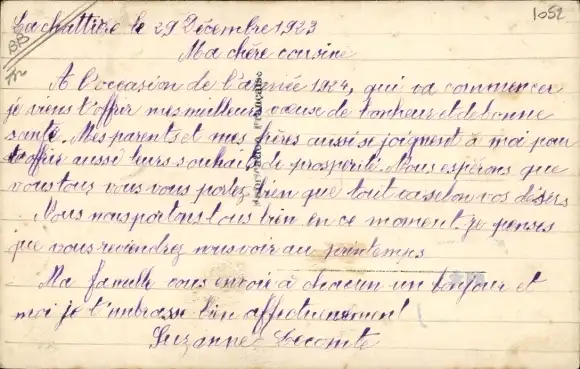 1052
La chattière le 29 Décembre 1923
BB
Ma chère cousine
A l'occasion de l'année 1924, qui va commencer
je viens t'offrir mes meilleurs voeux de bonheur et de bonne
santé. Mes parents et mes frères aussi se joignent à moi pour
t'offrir aussi leurs souhaits de prosperité. Nous espérons que
vous tous vous vous portez bien que tout va selon vos désirs
Nous nous portons tous bien en ce moment. je penses
que vous reviendrez nous voir au printemps
Ma famille vous envoie à chacun un bonjour et
moi je t'embrasse bien affectueusement
Suzanne Lecomte